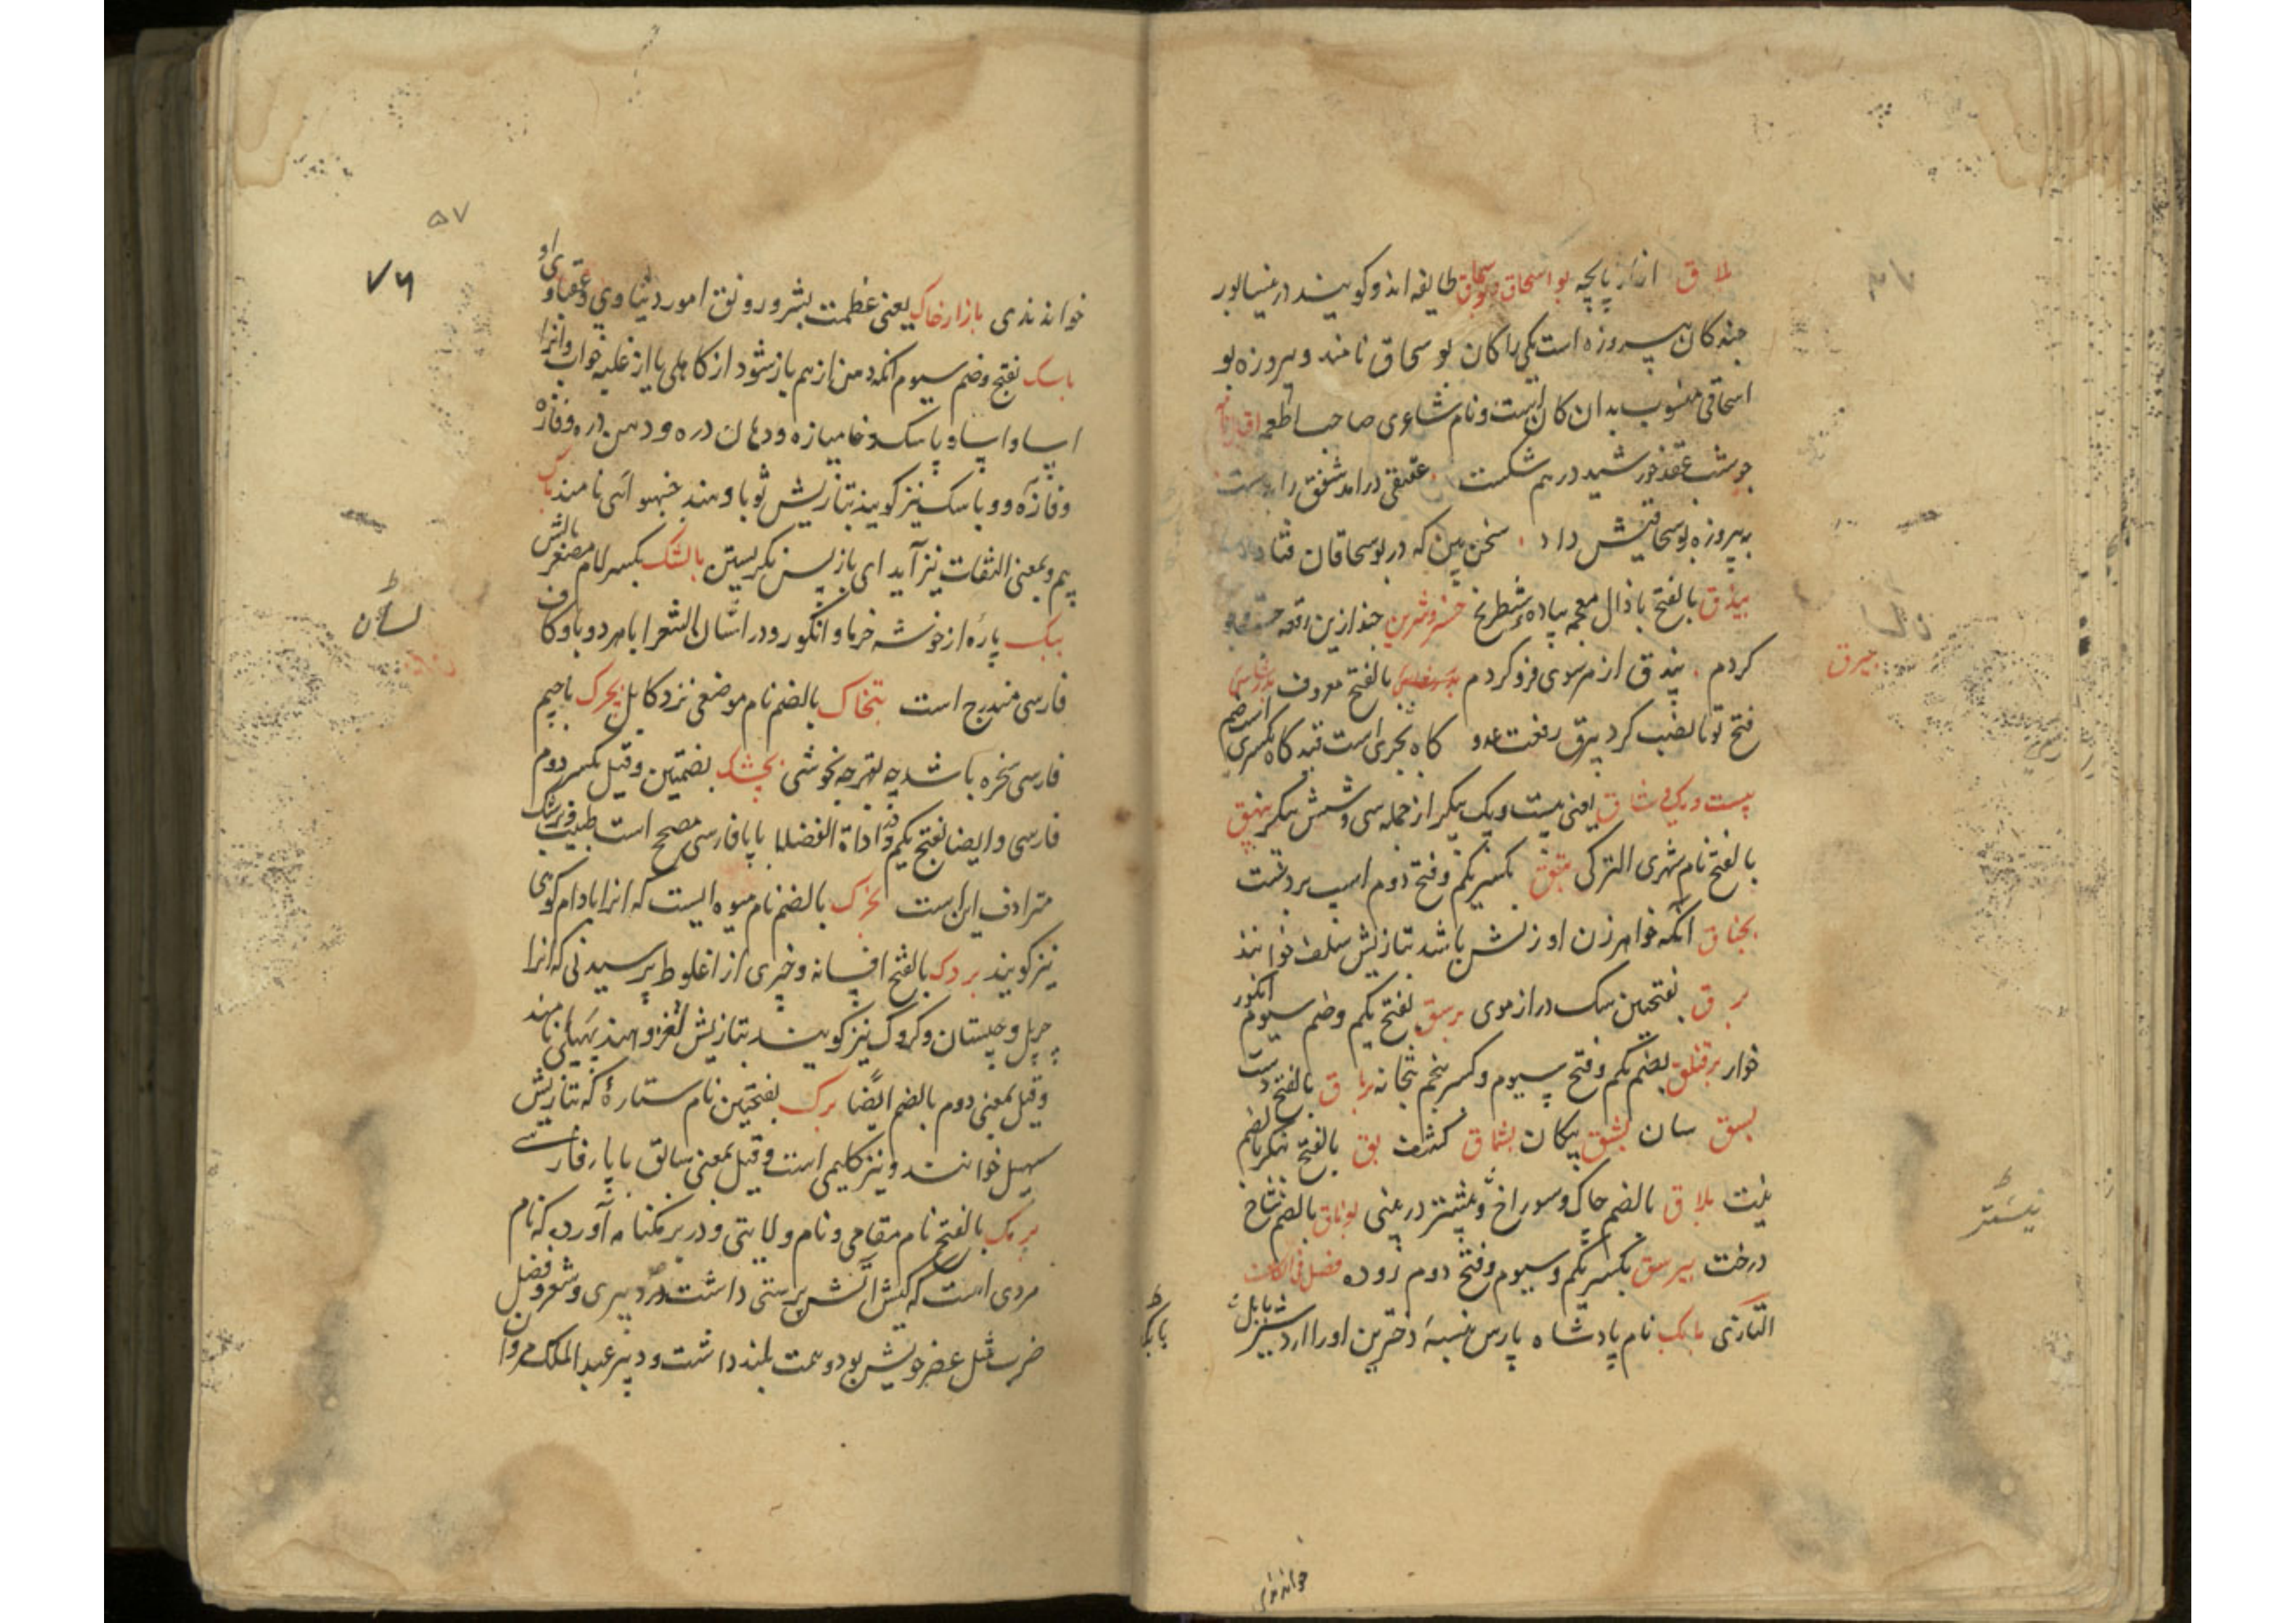 بلاق ازار پاچه بو اسحاق و بوسحاق طایفه اند و کویند در نیسابور
چند کان پیروزه است یکی را کان بوسحاق نامند و پیروزه بو
اسحاقی منسوب بدان کان است و نام شاعری صاحب اطعمه
چو شب عقد خورشید در هم شکست عقیقی درامد شفق را بدست
به پیروزه بوسحاقیش داد سخن بین که در بوسحاقان فتاد
بیذق بالفتح باذال معجم پیاده شطرنج خسرو شیرین چند ازین
کردم بیذق از هر سوی فرو کردم بالفتح معروف
بیرق
فتح تو تا نصب کرد بیرق رفعت عدو کاه بجری است قید کاه بکسری
بیست و یک وشاق یعنی بیست و یک پیکر از جمله سی و شش پیکر
بالفتح نام شهری الترکی بتق بکسر یکم و فتح دوم اسب بر دست
بجناق انکه خواهر زن او زنش باشد بتازیش سلف خوانند
برق بفتحتین سک دراز موی برسق بفتح یکم و ضم سیوم انکور
خوار برقنلق بضم یکم و فتح سیوم و کسر پنجم بالفتح دست
بسق سان بشق پیکان بشماق کفش بق بالفتح بنکر بالضم
بلاق بالضم چاک و سوراخ و بیشتر در بینی بوتاق بالضم شاخ
نیستر
درخت بیرسق بکسر یکم و سیوم و فتح دوم روده فصل فی الکاف
التازی بابک نام پادشاه پارس نبسهٔ دخترین او را اردشیر
بابک
خوانند
۵۷
۷۶
خوانندی بازار خاک یعنی عظمت بشر و رونق امور دنیاوی و عقباوی او
باسک بفتح و ضم سیوم انکه دهن از هم باز شود از کاهلی یا از غلبه خواب و انرا
اسا و اسا و پاسک و خامیازه و دهان دره و دهن دره و فاژه
و فاژه و وباسک نیز کویند بتازیش ثوبا و هند جنبهوائی نامند
بیم و بمعنی التفات نیز آید ای باز پس نکریستن بالشک بکسر لام مصغر بالش
ببک پارهٔ از خوشه خرما و انکور و در لسان الشعرا با هر دو با و کاف
لسان
فارسی مندرج است بتخاک بالضم نام موضعی نزد کابل بجرک باجیم
فارسی سخره باشد چه بقهر چه بخوشی بجشک بضمتین و قیل بکسر دوم
فارسی و ایضا بفتح یکم و در اداة الفضلا با پا فارسی مصحح است طبیب و پزشک
مترادف این است بخرک بالضم نام میوه ایست که انرا بادام کوهی
نیز کویند بردک بالفتح افسانه و چیزی از اغلوط پرسیدنی که انرا
چرپل و چیستان و کروک نیز کویند بتازیش لغز و هند پهیلی نامند
و قیل بمعنی دوم بالضم ایضا برک بفتحتین نام ستارهٔ که بتازیش
سهیل خوانند و نیز کلیمی است و قیل بمعنی سابق با پا فارسی
برمک بالفتح نام مقامی و نام ولایتی و در برمکنامه آورده که نام
مردی است که کیش آتش پرستی داشت و در دبیری و شعر و فضل
ضرب مثل عصر خویش بود و همت بلند داشت و دبیر عبد الملک مروان